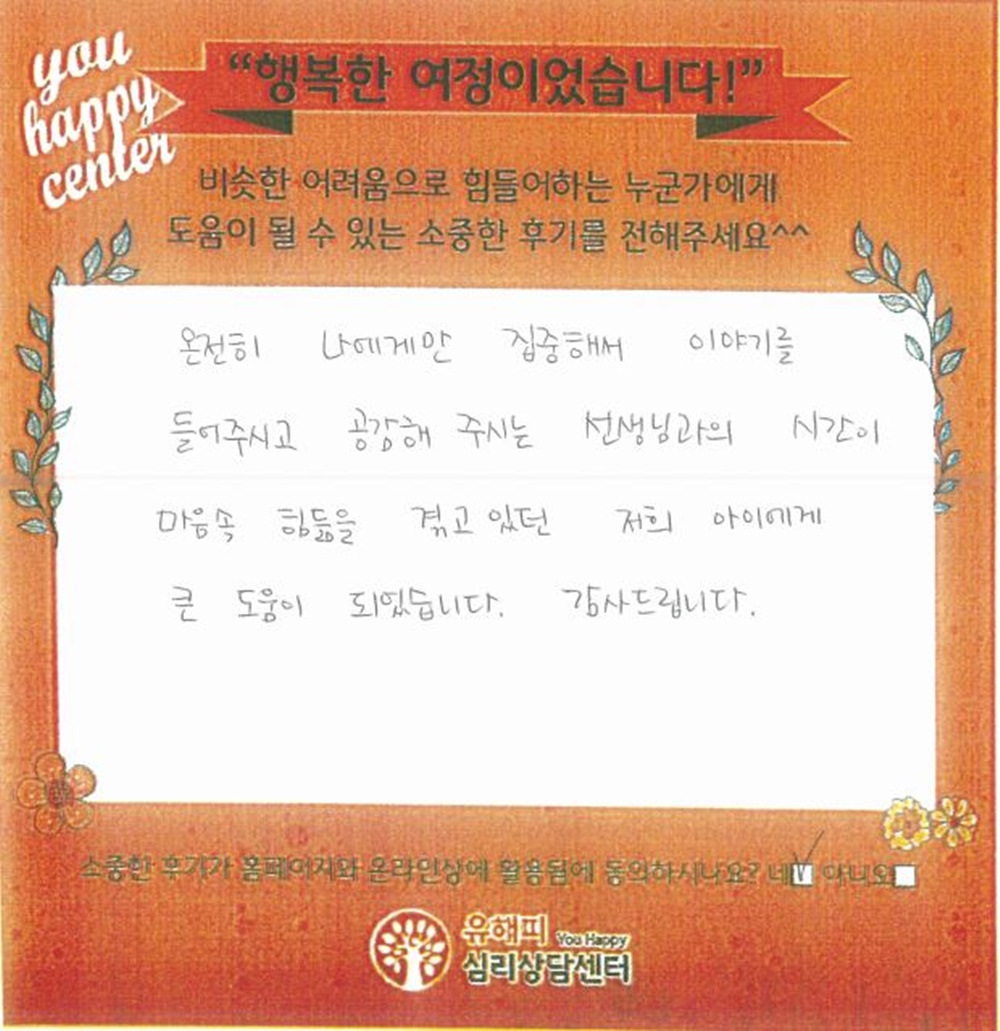 you
happy
center
“행복한 여정이었습니다!”
비슷한 어려움으로 힘들어하는 누군가에게
도움이 될 수 있는 소중한 후기를 전해주세요^^
온전히 나에게만 집중해서 이야기를
들어주시고 공감해 주시는 선생님과의 시간이
마음속 힘듦을 겪고 있던 저희 아이에게
큰 도움이 되었습니다. 감사드립니다.
소중한 후기가 홈페이지와 온라인상에 활용됨에 동의하시나요? 네 아니오
유해피 You Happy
심리상담센터